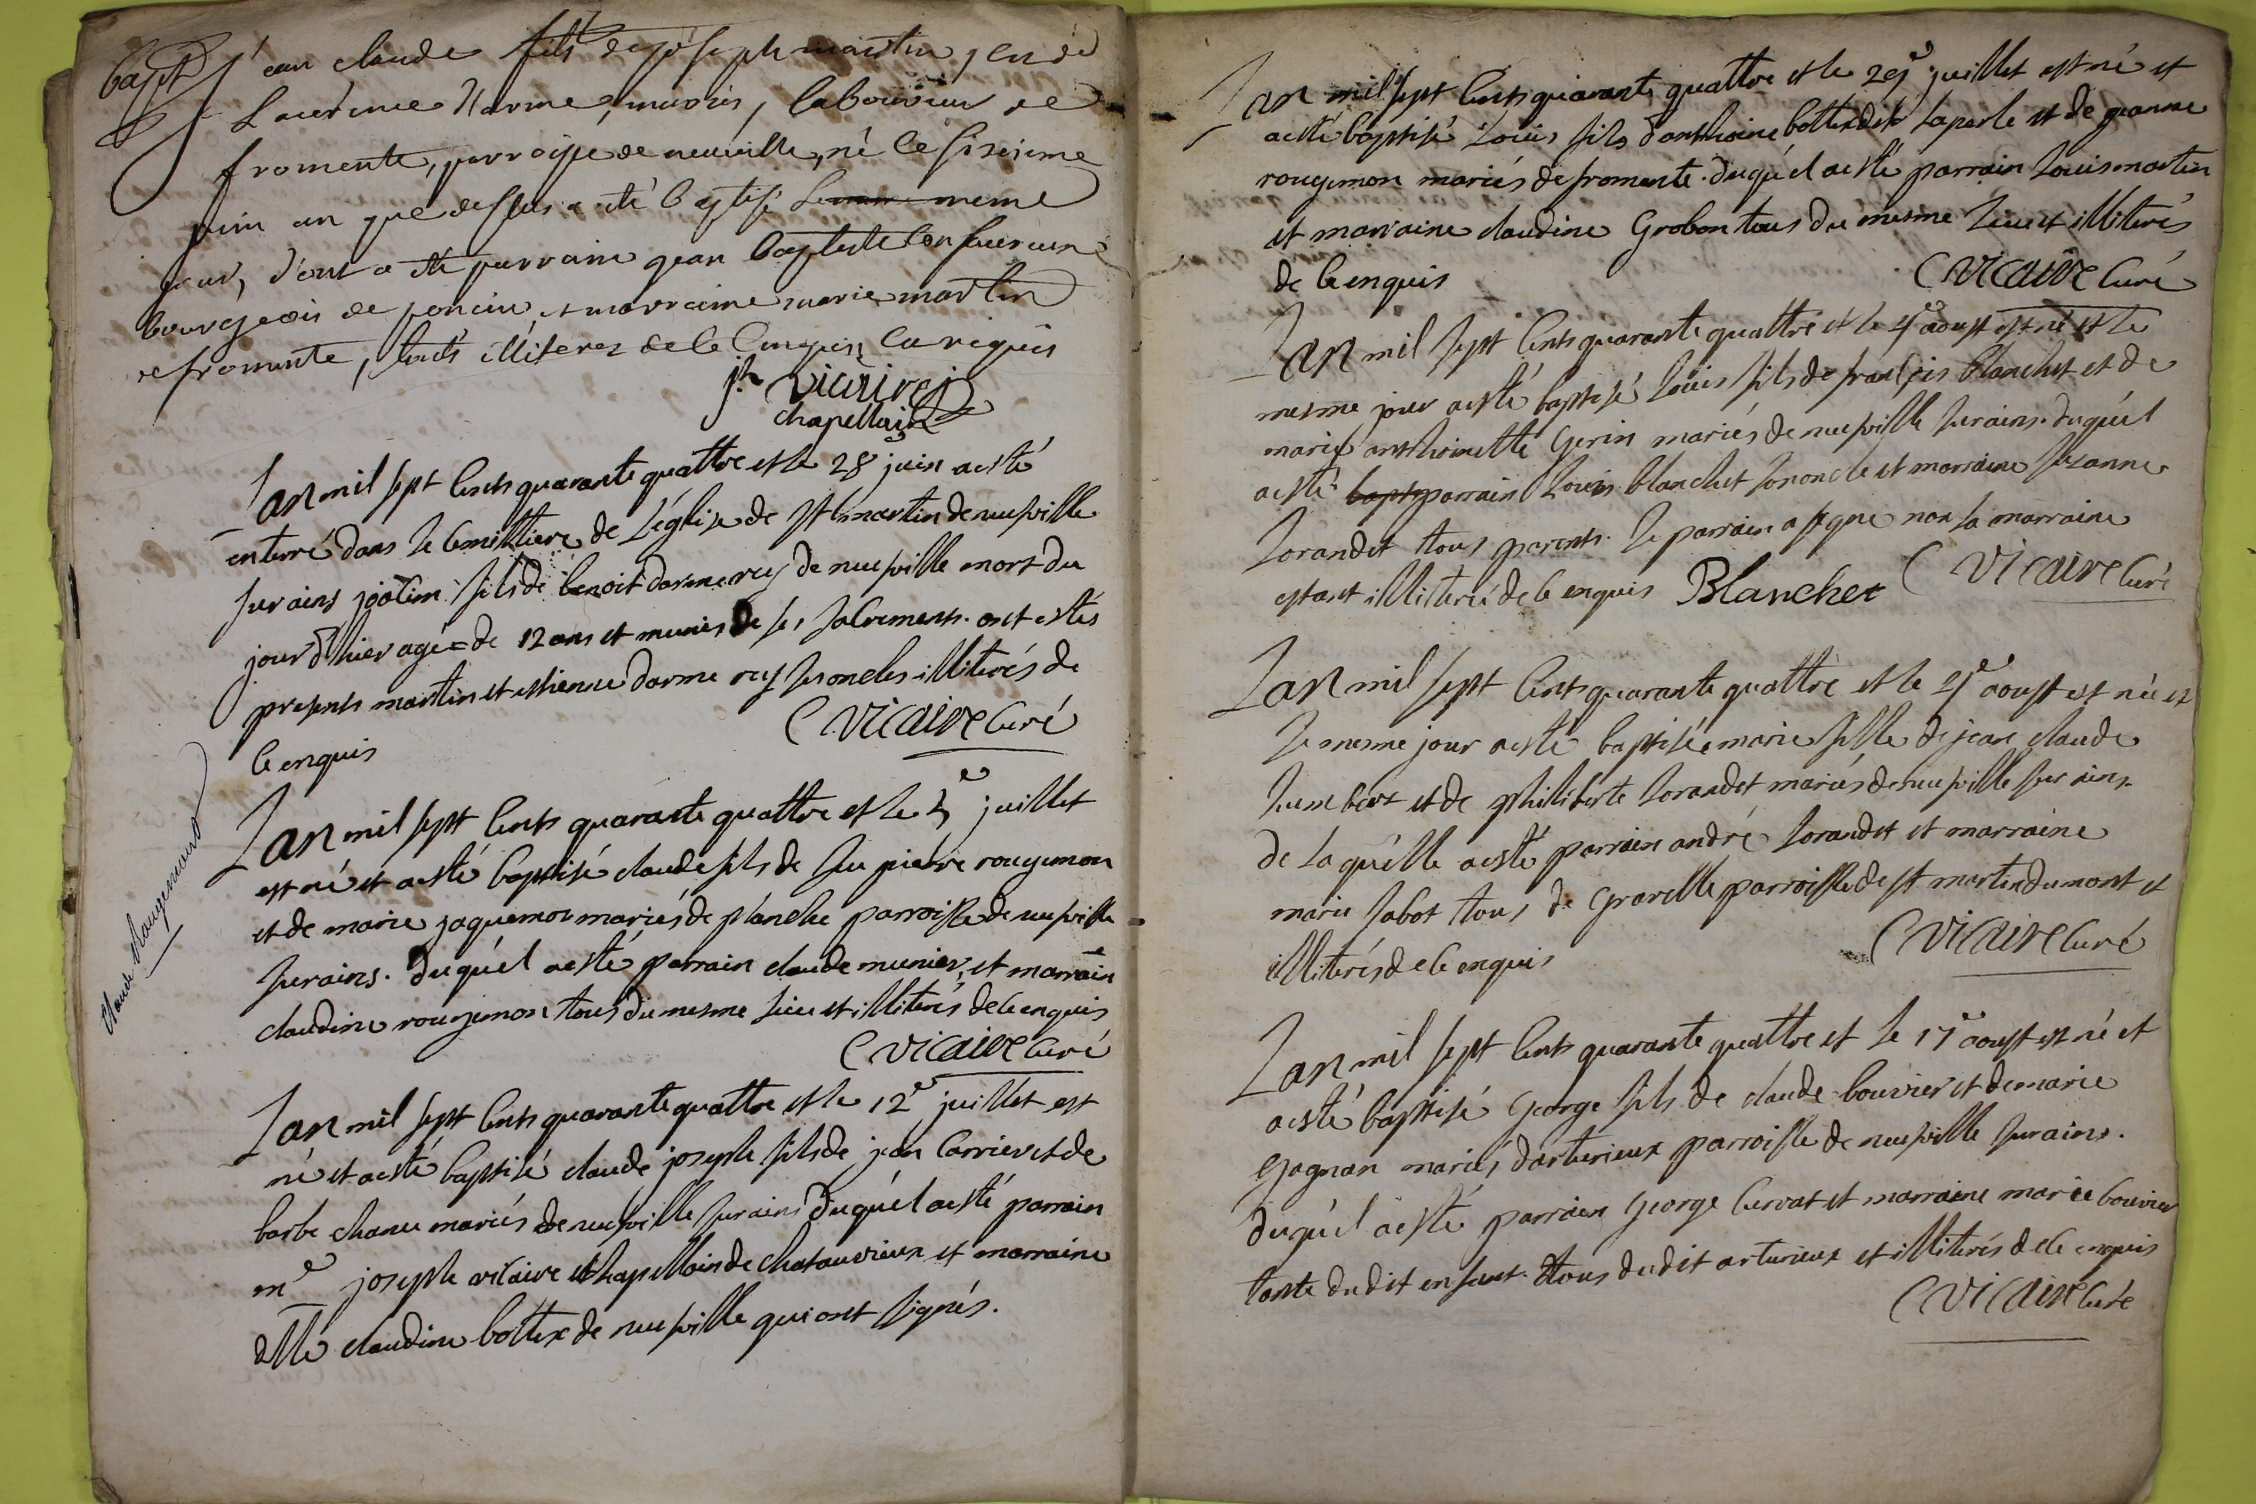 bapt
jean claude fils de joseph martin, et de
Laurence Darme, mariés, laboureur de
fromente, parroisse de neuville, né le sixieme
juin an que dessus a été baptisé le meme
jour, dont a été parrain jean baptiste
bourgeois de poncin, et marraine marie martin
de fromente, touts illiterez de ce enquis et requis
jh vicaire
chapellain
Lan mil sept cents quarante quattre et le 28e juin a esté
enterré dans le cemittiere de l'église de st martin de neufville
sur ains joacim fils de benoit darmerey de neufville mort du
jour d'hier agé de 12 ans et munis de ses sacrements. ont estés
presents martin et esthienne darmerey ses oncles illiterés de
ce enquis
vicaire curé
Lan mil sept cents quarante quattre et le 5e juillet
est né et a esté baptisé claude fils de feu pierre rougemon
et de marie jaquemot mariés de planche parroisse de neufville
sur ains. duquél a esté parrain claude munier, et marraine
claudine rougemon tous du mesme lieu et illiterés de ce enquis
vicaire curé
claude Rougemont
Lan mil sept cents quarante quattre et le 12e juillet est
né et a esté baptisé claude joseph fils de jean carrier et de
barbe chanu mariés de neufville sur ains duquél a esté parrain
mre joseph vicaire chapellain de chatauvieux et marraine
dlle claudine bottex de neufville qui ont signés.
Lan mil sept cents quarante quattre et le 29e juillet est né et
a esté baptisé Louis fils d'anthoine bottex dit laperle et de jeanne
rougemon mariés de fromente. duquél a esté parrain Louis martin
et marraine claudine Grobon tous du mesme lieu et illiterés
de ce enquis
vicaire curé
Lan mil sept cents quarante quattre et le aoust est né et le
mesme jour a esté baptisé Louis fils de françois blanchet et de
marie anthoinette Gerin mariés de neufville sur ains. duquél
a esté parrain Louis blanchet son oncle et marraine suzanne
Lorandet tous parents. Le parrain a signé non la marraine
estant illiterée de ce enquis Blanchet vicaire curé
Lan mil sept cents quarante quattre et le aoust est née et
le mesme jour a esté baptisée marie fille de jean claude
humbert et de philiberte Lorandet mariés de neufville sur ains.
de laquélle a esté parrain andré Lorandet et marraine
marie Jabot tous de Gravelle parroisse de st martin du mont et
illiterés de ce enquis
vicaire curé
Lan mil sept cents quarante quattre et le 17e aoust est né et
a esté baptisé George fils de claude bouvier et de marie
gagnan mariés d'arturieux parroisse de neufville sur ains.
duquél a esté parrain George curvat et marraine marie bouvier
tante dudit enfant. tous dudit arturieux et illiterés de ce enquis
vicaire curé